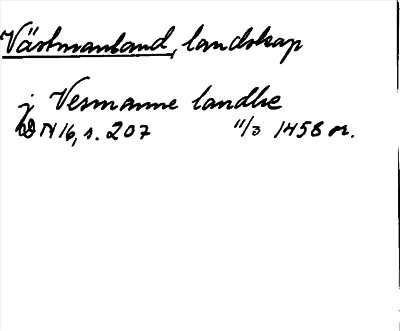 Västmanland, landskap
j Vesmanne landhe
DN 16, s. 207 11/3 1458 or.